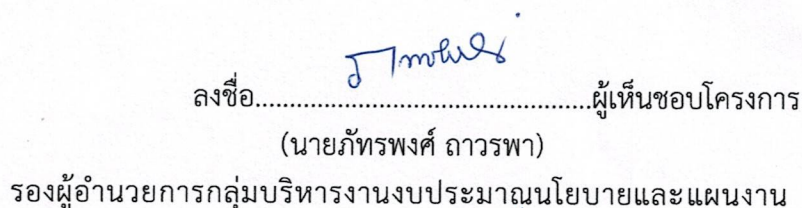 ลงชื่อ..................................................ผู้เห็นชอบโครงการ
(นายภัทรพงศ์ ถาวรพา)
รองผู้อำนวยการกลุ่มบริหารงานงบประมาณนโยบายและแผนงาน